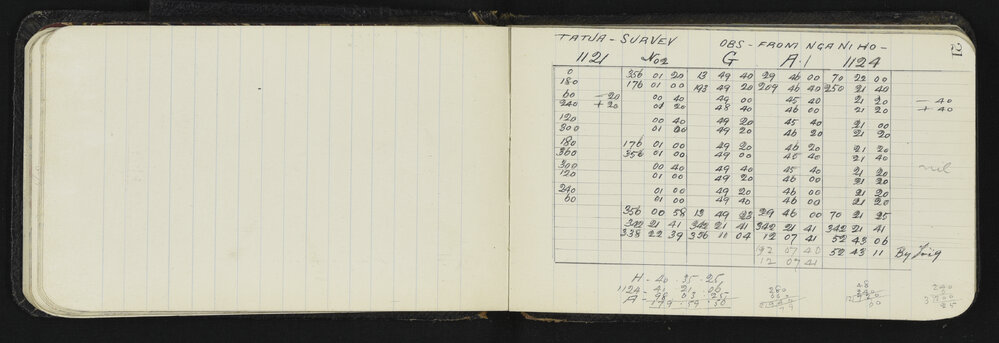 21
TATUA - SURVEY OBS - FROM NGANIHO -
1121 No2 G A.1 1124
0 356 01 20 13 49 40 29 46 00 70 22 00
180 176 01 00 193 49 20 209 46 40 250 21 40
60 - 20 00 40 49 00 45 40 21 20 - 40
240 + 20 01 20 48 40 46 00 21 20 + 40
120 00 40 49 20 45 40 21 00
300 01 00 49 20 46 20 21 20
180 176 01 00 49 20 46 20 21 20
360 356 01 00 49 00 45 40 21 40
300 00 40 49 40 45 40 21 20 nil
120 01 00 49 20 46 00 21 20
240 01 00 49 20 46 00 21 20
60 01 00 49 40 46 00 21 20
356 00 58 13 49 23 29 46 00 70 21 25
342 21 41 342 21 41 342 21 41 342 21 41
338 22 39 356 11 04 12 07 41 52 43 06
192 07 40 52 43 11 By Trig
12 07 41
H - 40 . 35 . 25
1124 - 41 21 06
A - 98 03 25
179 . 59 . 50
280
240